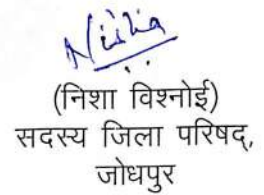 Nisha
(निशा विश्नोई)
सदस्य जिला परिषद्,
जोधपुर